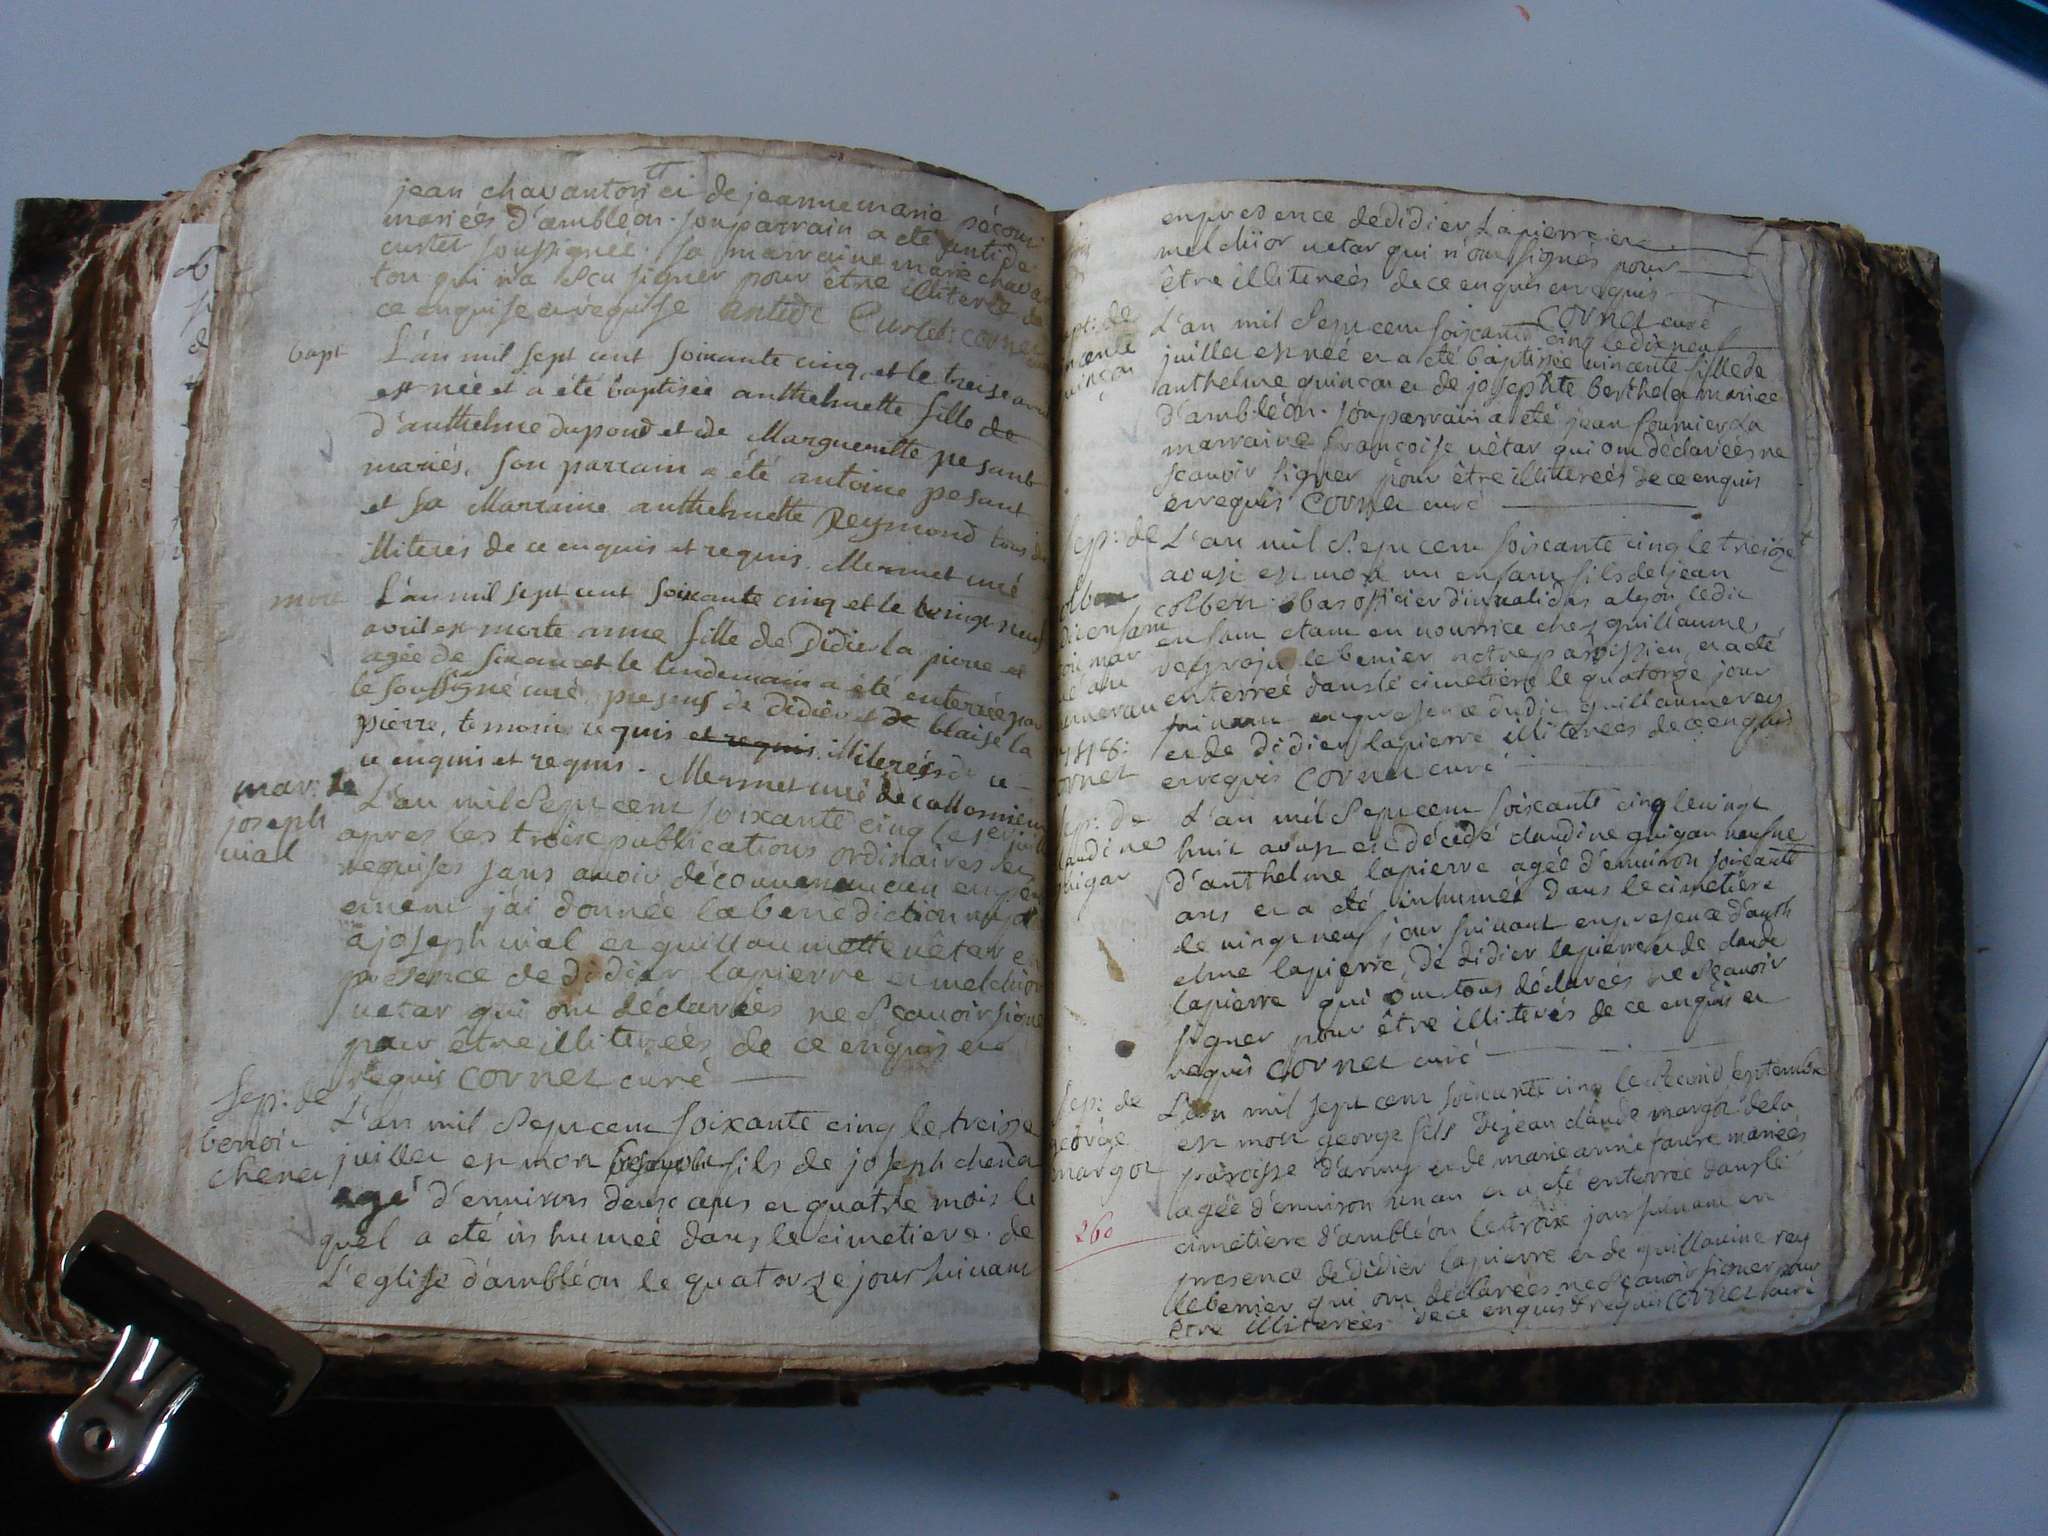 jean chavanton et de jeanne marie sécour
mariés d'ambléon. son parrain a été antide
curtet soussignée. sa marraine marie chavan
ton qui n'a scu signer pour être illiterée de
ce enquise et requise antide Curtet: cornet
bapt L'an mil sept cent soixante cinq, et le treise avril
est née et a été baptisée anthelmette fille de
d'anthelme dupond et de Margueritte pesant
mariés, son parrain a été antoine pesant
et sa Marraine anthelmette Reymond tous
illiterés de ce enquis et requis. Mermet curé
mort L'an mil sept cent soixante cinq et le vingt neuf
avril est morte anne fille de Didier la pierre et
agée de six ans et le lendemain a été enterrée par
le soussigné curé, presens de didier et de blaise la
pierre, temoins requis et requis illiterés de ce
ce enquis et requis. Mermet curé de collonnieu
mar: de L'an mil sept cent soixante cinq le juill
joseph apres les trois publications ordinaires et
vial requises sans avoir découvert aucun empech
ement j'ai donnée la benediction nupt
a joseph vial et guillaumette vêtar en
présence de didier lapierre et melchior
vetar qui ont déclarées ne scavoir signer
pour être illiterées de ce enquis et
requis cornet curé
sep: de L'an mil sept cent soixante cinq le treise
benoit juillet est mort fils de joseph chenet
chenet agé d'environ deux ans et quatre mois le
quel a été inhumée dans le cimetiere de
L'eglise d'ambléon le quatorze jour suivant
en presence de didier Lapierre et
melchior vetar qui n'ont signés pour
être illiterées de ce enquis et requis
cornet curé
bapt: de L'an mil sept cent soixante cinq le dix neuf
vincente juillet est née et a été baptisée vincente fille de
quinçon anthelme quinçon et de josephte berthelet mariée
d'ambléon. son parrain a été jean fournier La
marraine françoise vêtar qui ont déclarées ne
scavoir signer pour être illiterées de ce enquis
et requis Cornet curé
sep: de L'an mil sept cent soixante cinq le treize
aoust est mort un enfant fils de jean
colbert colbert bas officier d'invalides a lyon, ledit
enfant etant en nourrice chez guillaume
rey roju lebenier notre paroissien, et a été
enterrée dans le cimetiere le quatorze jour
suivant en presence dudit guillaume rey
et de didier lapierre illiterées de ce enquis
cornet et requis cornet curé
sep: de L'an mil sept cent soixante cinq le vingt
claudine huit aoust est décédé claudine guigar veufve
guigar d'anthelme lapierre agée d'environ soixante
ans et a été inhumée dans le cimetiere
le vingt neuf jour suivant en presence d'anth
elme lapierre, de didier lapierre et de claude
lapierre qui ont tous déclarées ne scavoir
signer pour être illiterés de ce enquis et
requis cornet curé
sep: de L'an mil sept cent soixante cinq le second septembre
george est mort george fils de jean claude margot de la
margot paroisse d'army et de marie anne faure mariées
agée d'environ un an et a été enterrée dans le
cimetiere d'ambléon le troix jour suivant en
260
presence de didier lapierre et de guillaume rey
lebenier qui ont déclarées ne scavoir signer pour
être illiterées de ce enquis et requis cornet curé